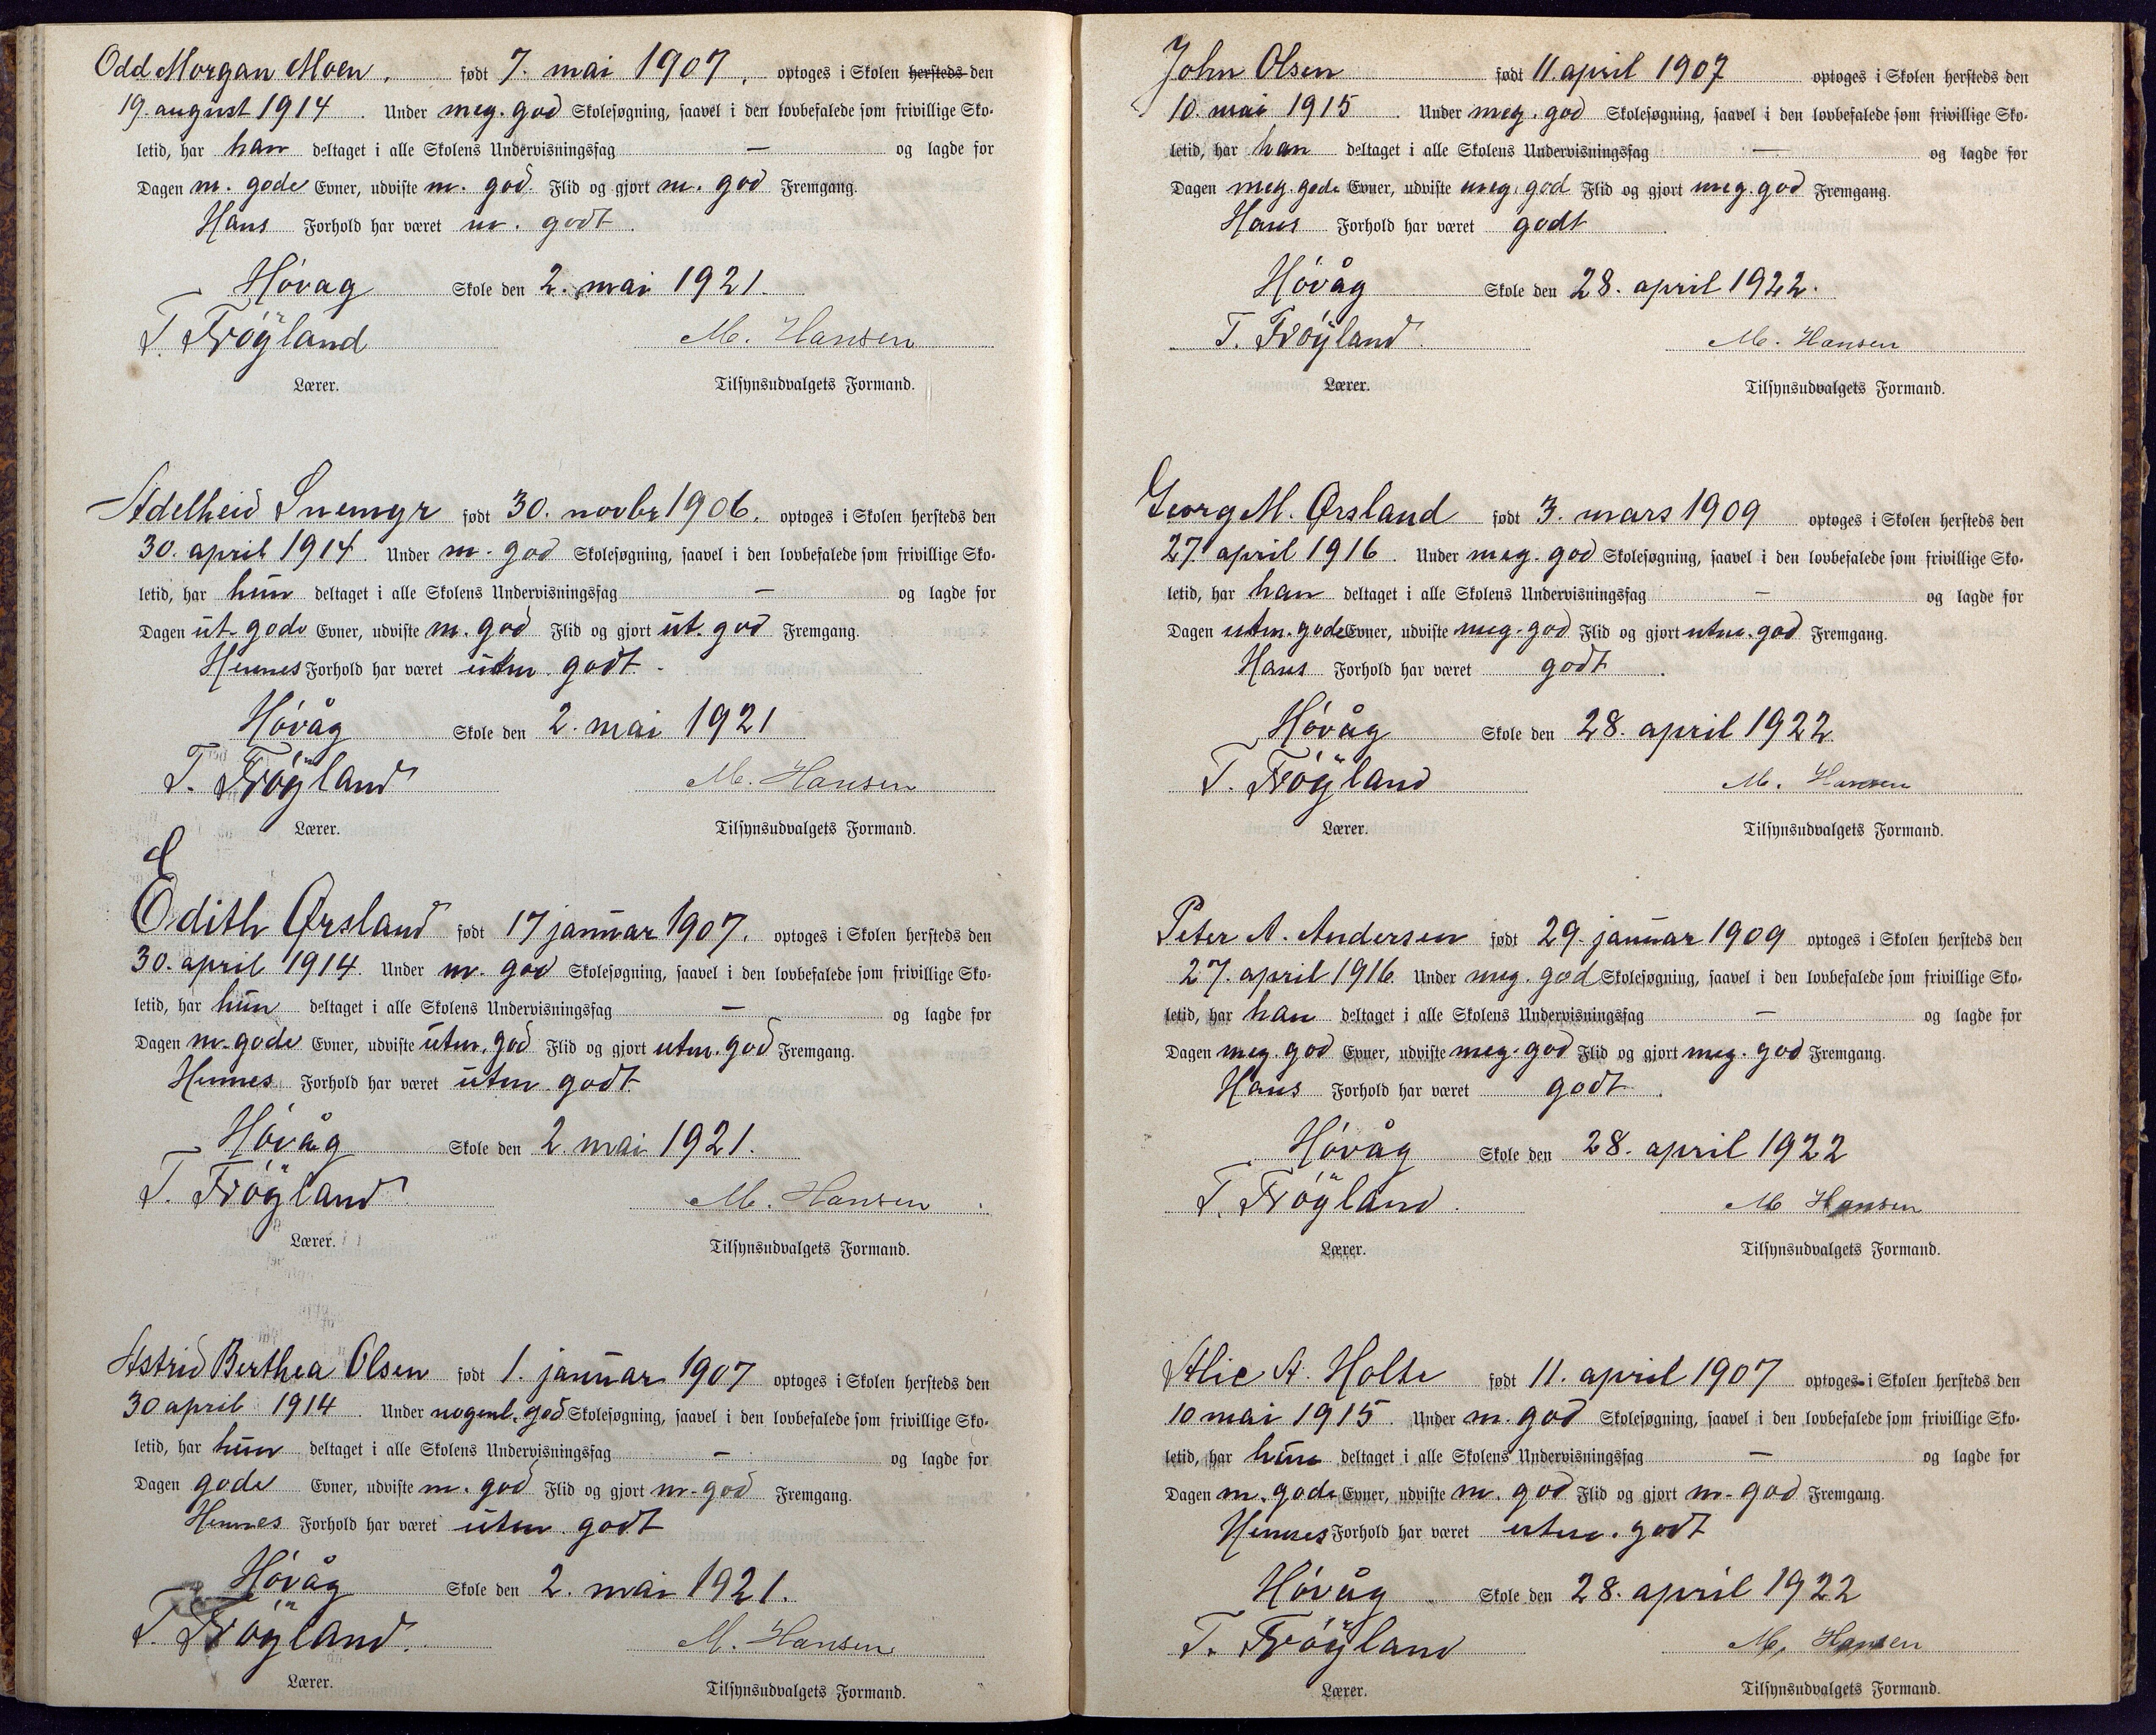 Odd Morgan Moen, født 7. mai 1907, optoges i Skolen hersteds den
19. august 1914. Under meg. god Skolesøgning, saavel i den lovbefalede som frivillige Sko-
letid, har han deltaget i alle Skolens Undervisningsfag — og lagde for
Dagen m. gode Evner, udviste m. god Flid og gjort m. god Fremgang.
Hans Forhold har været m. godt.
Høvag Skole den 2. mai 1921.
T. Frøyland M. Hansen
Lærer. Tilsynsudvalgets Formand.
Adelheid Snemyr født 30. novbr 1906. optoges i Skolen hersteds den
30. april 1914. Under m. god Skolesøgning, saavel i den lovbefalede som frivillige Sko-
letid, har hun deltaget i alle Skolens Undervisningsfag — og lagde for
Dagen ut. gode Evner, udviste m. god Flid og gjort ut. god Fremgang.
Hennes Forhold har været utm. godt.
Høvåg Skole den 2. mai 1921
T. Frøyland M. Hansen
Lærer. Tilsynsudvalgets Formand.
E
Edith Ørsland født 17 januar 1907. optoges i Skolen hersteds den
30. april 1914. Under m. god Skolesøgning, saavel i den lovbefalede som frivillige Sko-
letid, har hun deltaget i alle Skolens Undervisningsfag — og lagde for
Dagen m. gode Evner, udviste utm. god Flid og gjort utm. god Fremgang.
Hennes Forhold har været utm. godt
Høvåg Skole den 2. mai 1921.
T. Frøyland M. Hansen.
Lærer. Tilsynsudvalgets Formand.
Astrid Berthea Olsen født 1. januar 1907 optoges i Skolen hersteds den
30 april 1914. Under nogenl. god Skolesøgning, saavel i den lovbefalede som frivillige Sko-
letid, har hun deltaget i alle Skolens Undervisningsfag — og lagde for
Dagen gode Evner, udviste m. god Flid og gjort m. god Fremgang.
Hennes Forhold har været utm. godt
Høvåg Skole den 2. mai 1921.
T. Frøyland. M. Hansen
Lærer. Tilsynsudvalgets Formand.
John Olsen født 11 april 1907 optoges i Skolen hersteds den
10. mai 1915. Under meg. god Skolesøgning, saavel i den lovbefalede som frivillige Sko-
letid, har han deltaget i alle Skolens Undervisningsfag — og lagde for
Dagen meg. gode Evner, udviste meg. god Flid og gjort meg. god Fremgang.
Hans Forhold har været godt.
Høvåg Skole den 28. april 1922.
T. Frøyland. M. Hansen
Lærer. Tilsynsudvalgets Formand.
Georg M. Ørsland født 3. mars 1909 optoges i Skolen hersteds den
27. april 1916. Under meg. god Skolesøgning, saavel i den lovbefalede som frivillige Sko-
letid, har han deltaget i alle Skolens Undervisningsfag — og lagde for
Dagen utm. gode Evner, udviste meg. god Flid og gjort utm. god Fremgang.
Hans Forhold har været godt.
Høvåg Skole den 28. april 1922.
T. Frøyland M. Hansen
Lærer. Tilsynsudvalgets Formand.
Peter A. Andersen født 29. januar 1909 optoges i Skolen hersteds den
27. april 1916. Under meg. god Skolesøgning, saavel i den lovbefalede som frivillige Sko-
letid, har han deltaget i alle Skolens Undervisningsfag — og lagde for
Dagen meg. god Evner, udviste meg. god Flid og gjort meg. god Fremgang.
Hans Forhold har været godt.
Høvåg Skole den 28. april 1922
T. Frøyland. M Hansen
Lærer. Tilsynsudvalgets Formand.
Alie A. Holte født 11. april 1907 optoges i Skolen hersteds den
10 mai 1915. Under m. god Skolesøgning, saavel i den lovbefalede som frivillige Sko-
letid, har hun deltaget i alle Skolens Undervisningsfag — og lagde for
Dagen m. gode Evner, udviste m. god Flid og gjort m. god Fremgang.
Hennes Forhold har været utm. godt
Høvåg Skole den 28. april 1922
T. Frøyland M. Hansen
Lærer. Tilsynsudvalgets Formand.